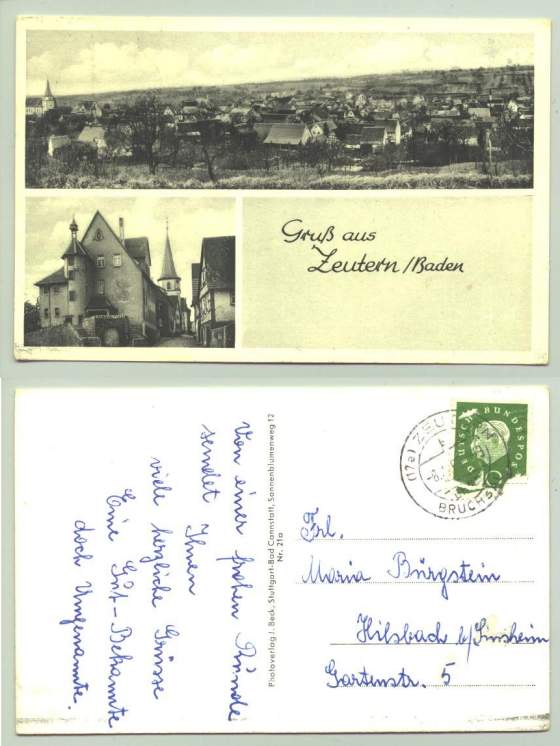 Gruß aus
Zeutern/Baden
Von einer frohen Runde
sendet Ihnen
viele herzliche Grüsse
Eine Gut-Bekannte
doch Ungenannte.
Photoverlag J. Beck, Stuttgart-Bad Cannstatt, Sonnenblumenweg 12
Nr. 21a
(17a) ZEUTERN
BRUCHSAL
DEUTSCHE BUNDESPOST
10
Frl.
Maria Bürgstein
Hilsbach b/Sinsheim
Gartenstr. 5